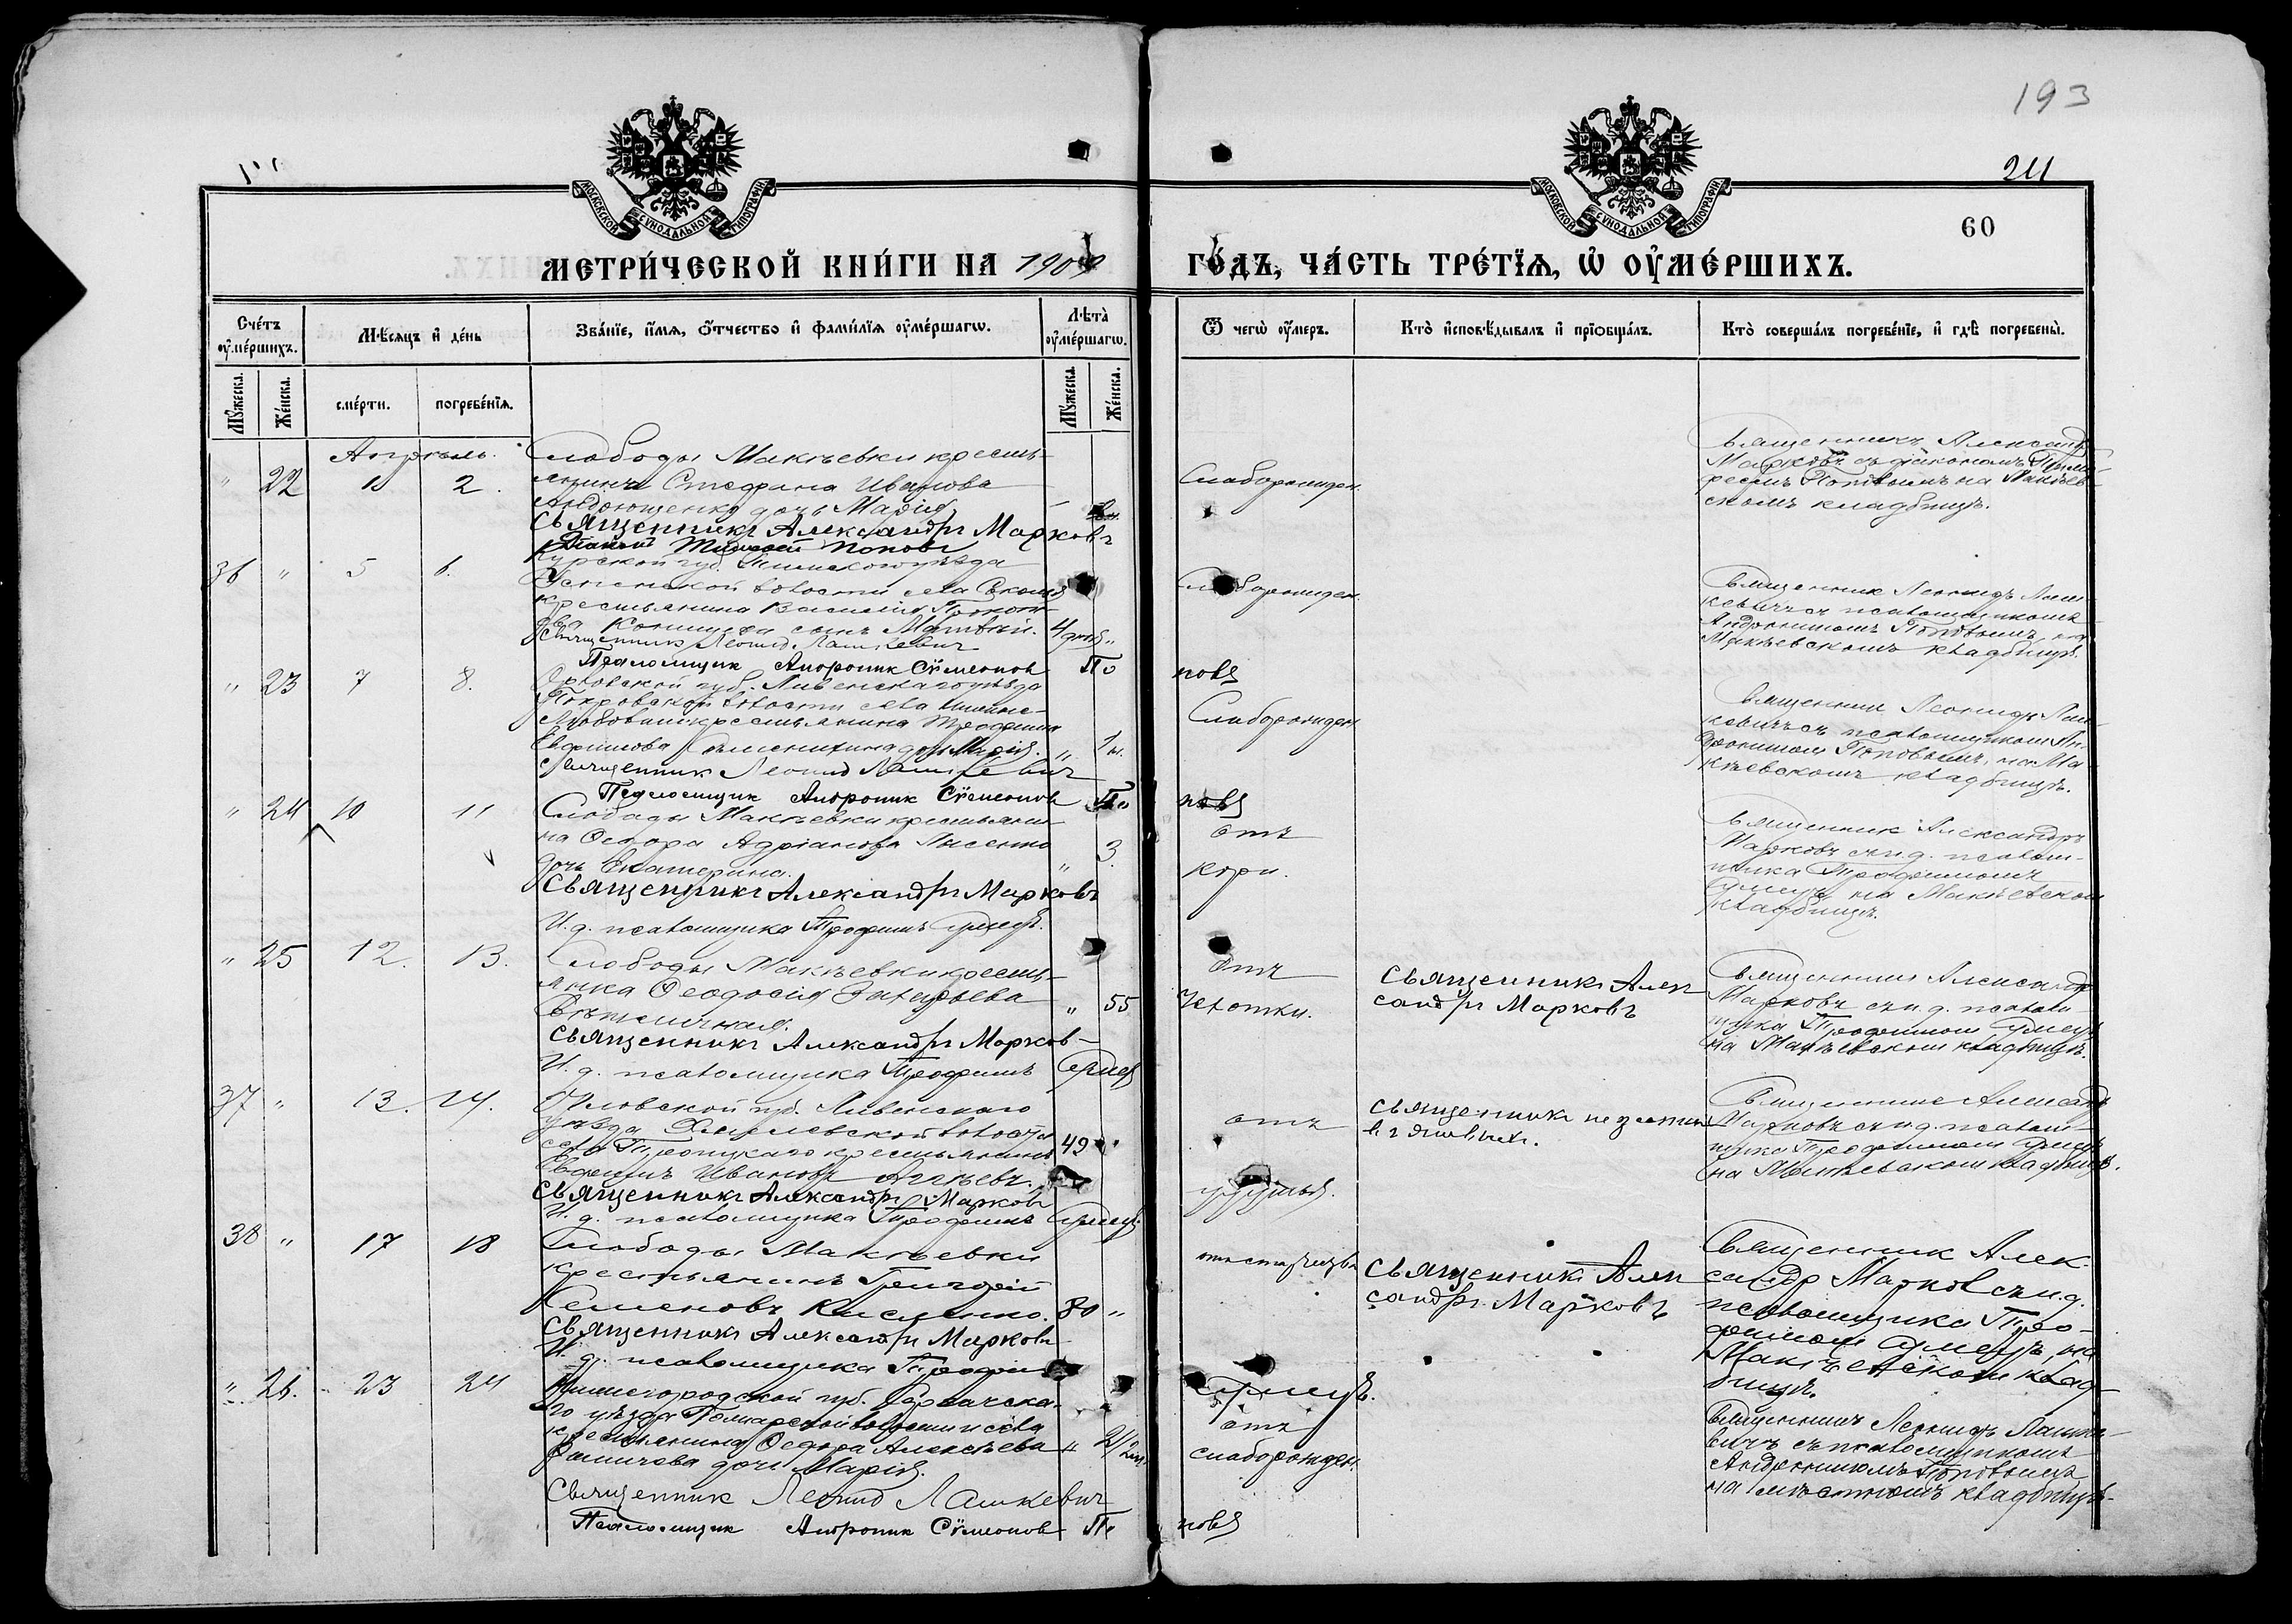 193
211
60
МОСКОВСКОЙ СѴНОДАЛЬНОЙ ТИПОГРАФІИ
МОСКОВСКОЙ СѴНОДАЛЬНОЙ ТИПОГРАФІИ
МЕТРИ́ЧЕСКОЙ КНИ́ГИ НА 1909
ГО́ДЪ, ЧА́СТЬ ТРЕ́ТЇѦ, Ѡ҆ ОУ҆МЕ́РШИХЪ.
Счетъ оумершихъ.
Мѣсяцъ и день
Званіе, имя, отчество и фамилія оумершагѡ.
Лѣта оумершагѡ.
Ѿ чегѡ оумеръ.
Кто исповѣдывалъ и пріобщалъ.
Кто совершалъ погребеніе, и гдѣ погребены.
Мужеска.
Женска.
смерти.
погребенія.
Мужеска.
Женска.
Апрѣль.
" 22 1 2.
Слободы Макѣевки кресть-
янина Стефана Иванова
Андрющенко дочь Марія
Священникъ Александръ Марковъ
Діаконъ Тимофей Поповъ
Слаборожден.
Священникъ Александръ
Марковъ съ діакономъ Тимо-
феемъ Поповымъ на Макѣев-
скомъ кладбищѣ.
36 " 5 6.
Курской губ. Тимскаго уѣзда
Успенской волости села
крестьянина Василія
сынъ Матвѣй. 4 дней "
Священникъ Леонид Лашкевич
Псаломщик Андроник Сѵмеонов По
повъ
Слаборожден.
Священник Леонидъ Лаш-
кевичъ съ псаломщикомъ
Андроникомъ Поповымъ, на
Макѣевскомъ кладбищѣ.
" 23 7 8.
Орловской губ. Ливенскаго уѣзда
Покровской волости села
крестьянина Трофима
Евфимова дочь Марія. " 1 м.
Священник Леонид Лашкевич
Псаломщик Андроник Сѵмеонов По
повъ
Слаборожден
Священник Леонидъ Лаш-
кевичъ съ псаломщикомъ Ан-
дроникомъ Поповымъ, на Ма-
кѣевскомъ кладбищѣ.
" 24 10 11
Слободы Макѣевки крестьяни-
на Ѳедора Адріанова Лысенко
дочь Екатерина. " 3.
Священникъ Александръ Марковъ
И. д. псаломщика Трофимъ
отъ
кори.
Священник Александръ
Марковъ съ и. д. псалом-
щика Трофимомъ
на Макѣевском
кладбищѣ.
" 25 12. 13.
Слободы Макѣевки кресть-
янка Ѳеодосія Захарьева
" 55
Священникъ Александръ Марков-
И. д. псаломщика Трофимъ
отъ
чахотки.
Священникъ Алек
сандръ Марковъ
Священник Александръ
Марковъ съ и. д. псалом-
щика Трофимом
на Макѣевском кладбищѣ.
37 " 13. 14.
Орловской губ. Ливенскаго
уѣзда волости
села Троицкаго крестьянинъ 49 "
Евфимъ Ивановъ
Священникъ Александръ Марков
И. д. псаломщика Трофимъ
отъ
удушья.
Священникъ не засталъ
въ живыхъ.
Священник Александръ
Марковъ съ и. д. псалом-
щика Трофимом
на Макѣевском кладбищѣ.
38 " 17 18
Слободы Макѣевки
крестьянинъ Григорій
Семеновъ Кисленко. 80 "
Священникъ Александръ Марковъ
И. д. псаломщика Трофим
отъ старости
Священникъ Алек
сандръ Марковъ
Священник Алек-
сандр Марков съ и. д.
псаломщика Тро-
фимом на
Макѣевском клад-
бищѣ.
" 26. 23 24
Нижегородской губ. Горбатска-
го уѣзда волости и села
крестьянина Ѳедора Алексѣева " 2 1/2 м.
дочь Марія.
Священник Леонид Лашкевич
Псаломщик Андроник Сѵмеонов По
повъ
отъ
слаборожден.
Священникъ Леонидъ Лашке-
вичъ съ псаломщикомъ
Андроникомъ Поповымъ
на мѣстномъ кладбищѣ.